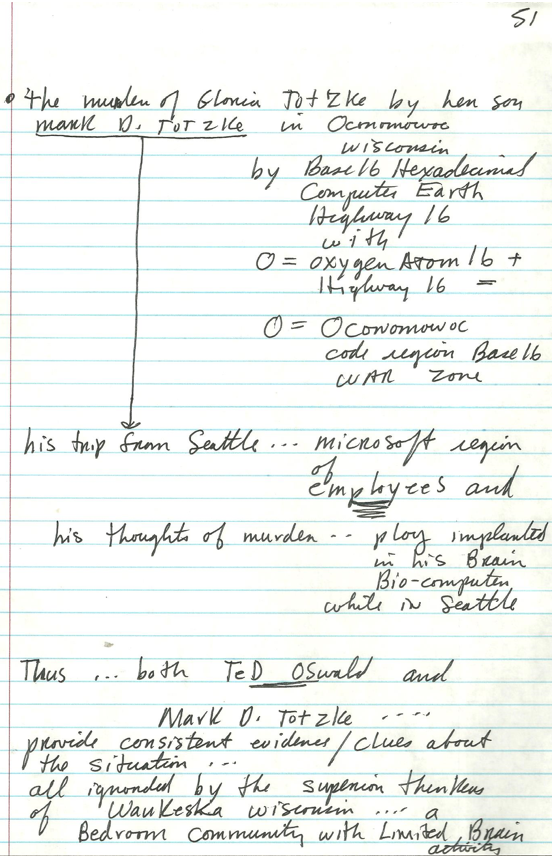 51
• The murder of Gloria Totzke by her son
Mark D. Totzke in Oconomowoc
Wisconsin
by Base16 Hexadecimal
Computer Earth
Highway 16
with
O = oxygen Atom 16 +
Highway 16 =
O = Oconomowoc
code region Base16
WAR Zone
his trip from Seattle... microsoft region
of
employees and
his thoughts of murder .. ploy implanted
in his Brain
Bio-computer
while in Seattle
Thus ... both TeD Oswald and
Mark D. Totzke ....
provide consistent evidence/clues about
the situation ...
all ignored by the superior thinkers
of Waukeska Wisconsin .... a
Bedroom Community with Limited Brain
activity